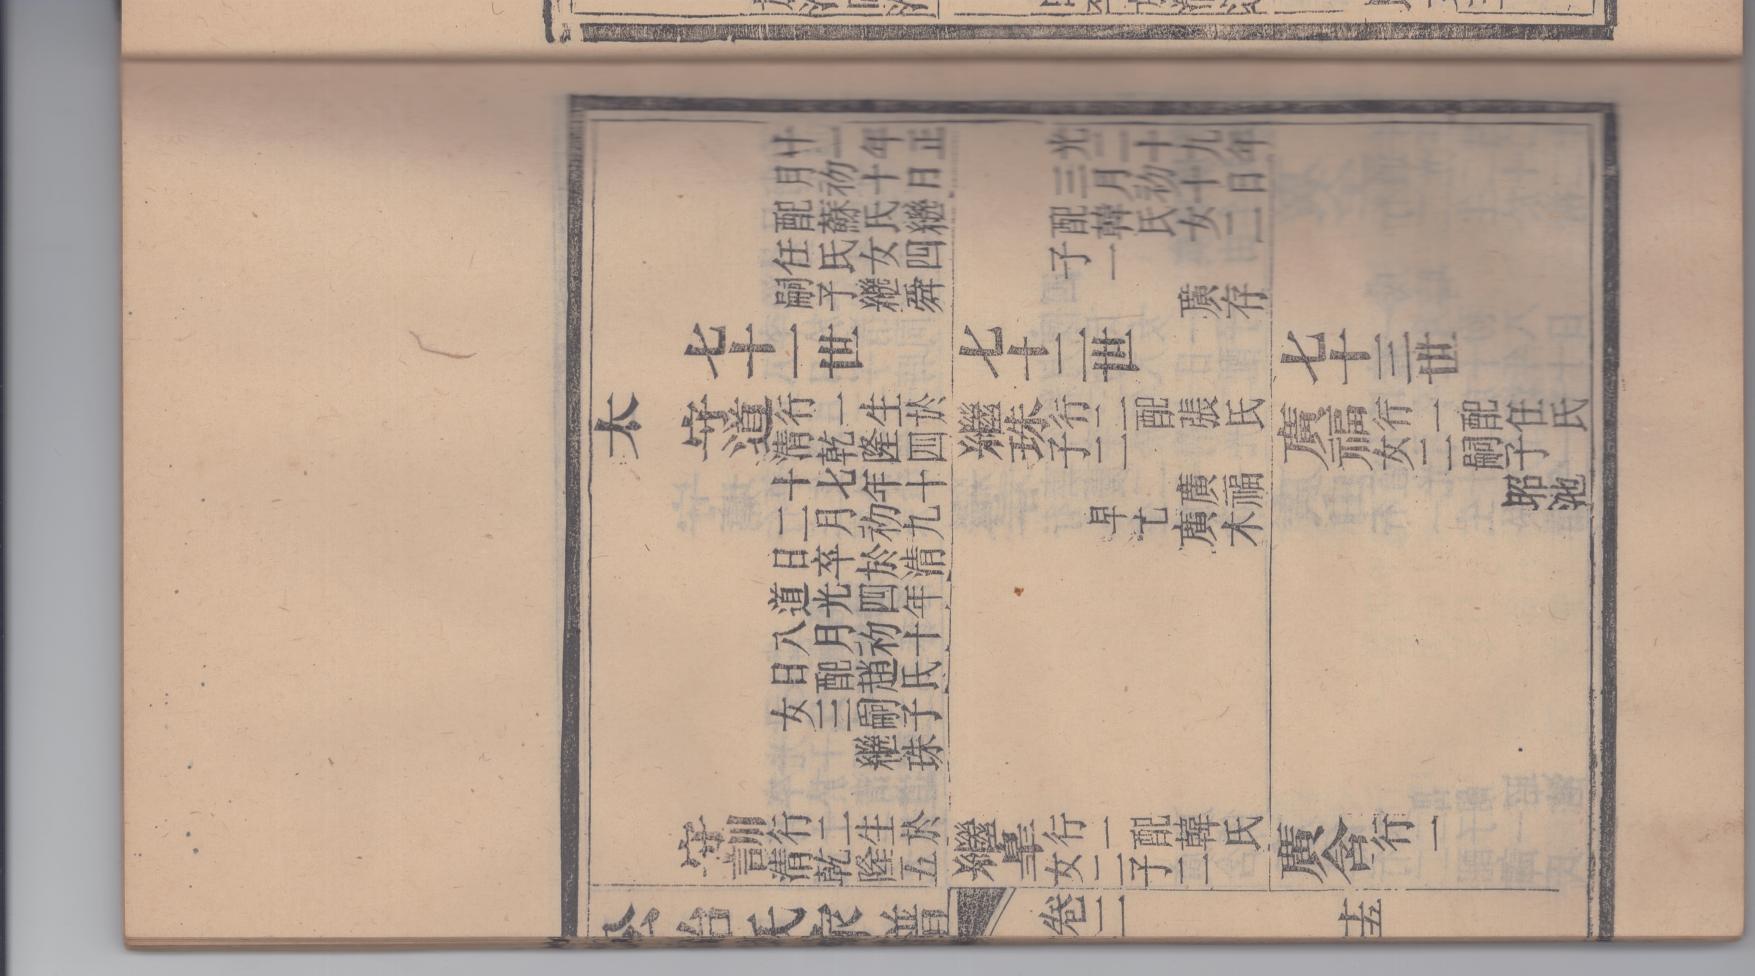 廿一年正
月初十日
配蘇氏繼
任氏女四
嗣子繼舜
光二十九年
三月初十日
配韓氏女二
子一
廣存
七十一世
七十二世
七十三世
太
守道 行一生於
清乾隆四
十七年十
二月初九
日卒於清
道光四年
八月初十
日配趙氏
女三嗣子
繼珠
繼珠 行二配張氏
子二
廣福
早亡 廣木
廣福 行一配任氏
女二嗣子
昭池
守訓 行二生於
清乾隆五
繼皋 行一配韓氏
女二子二
廣含 行一
公冶氏家譜 卷二 十五